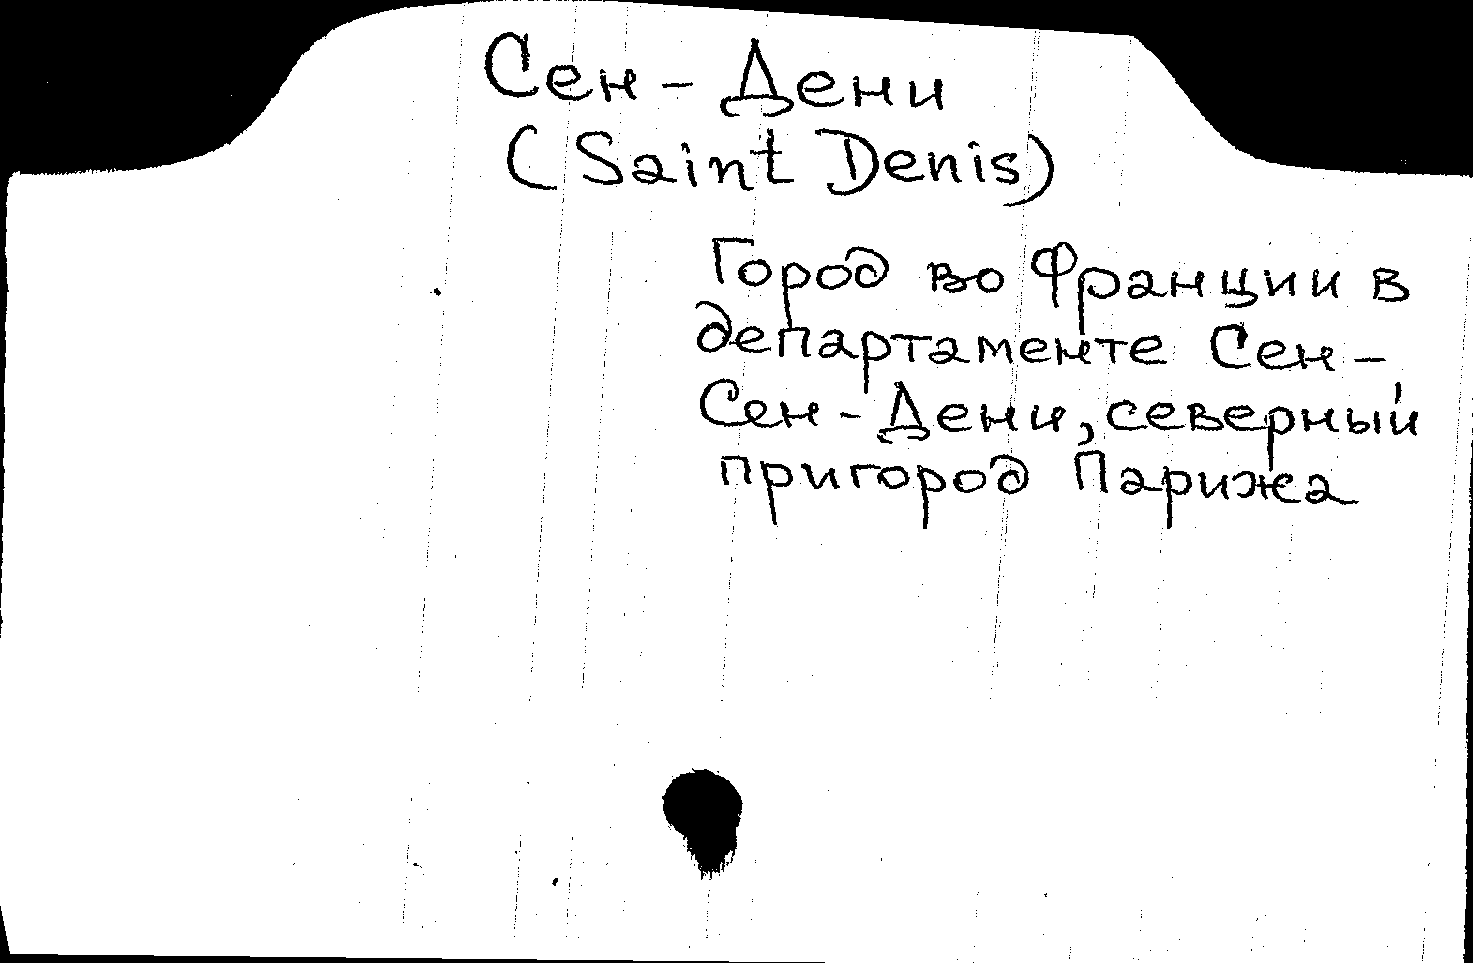 Сен - Дени
(Saint Denis)
Город во Франции в
департаменте Сен -
Сен - Дени, северный
пригород Парижа